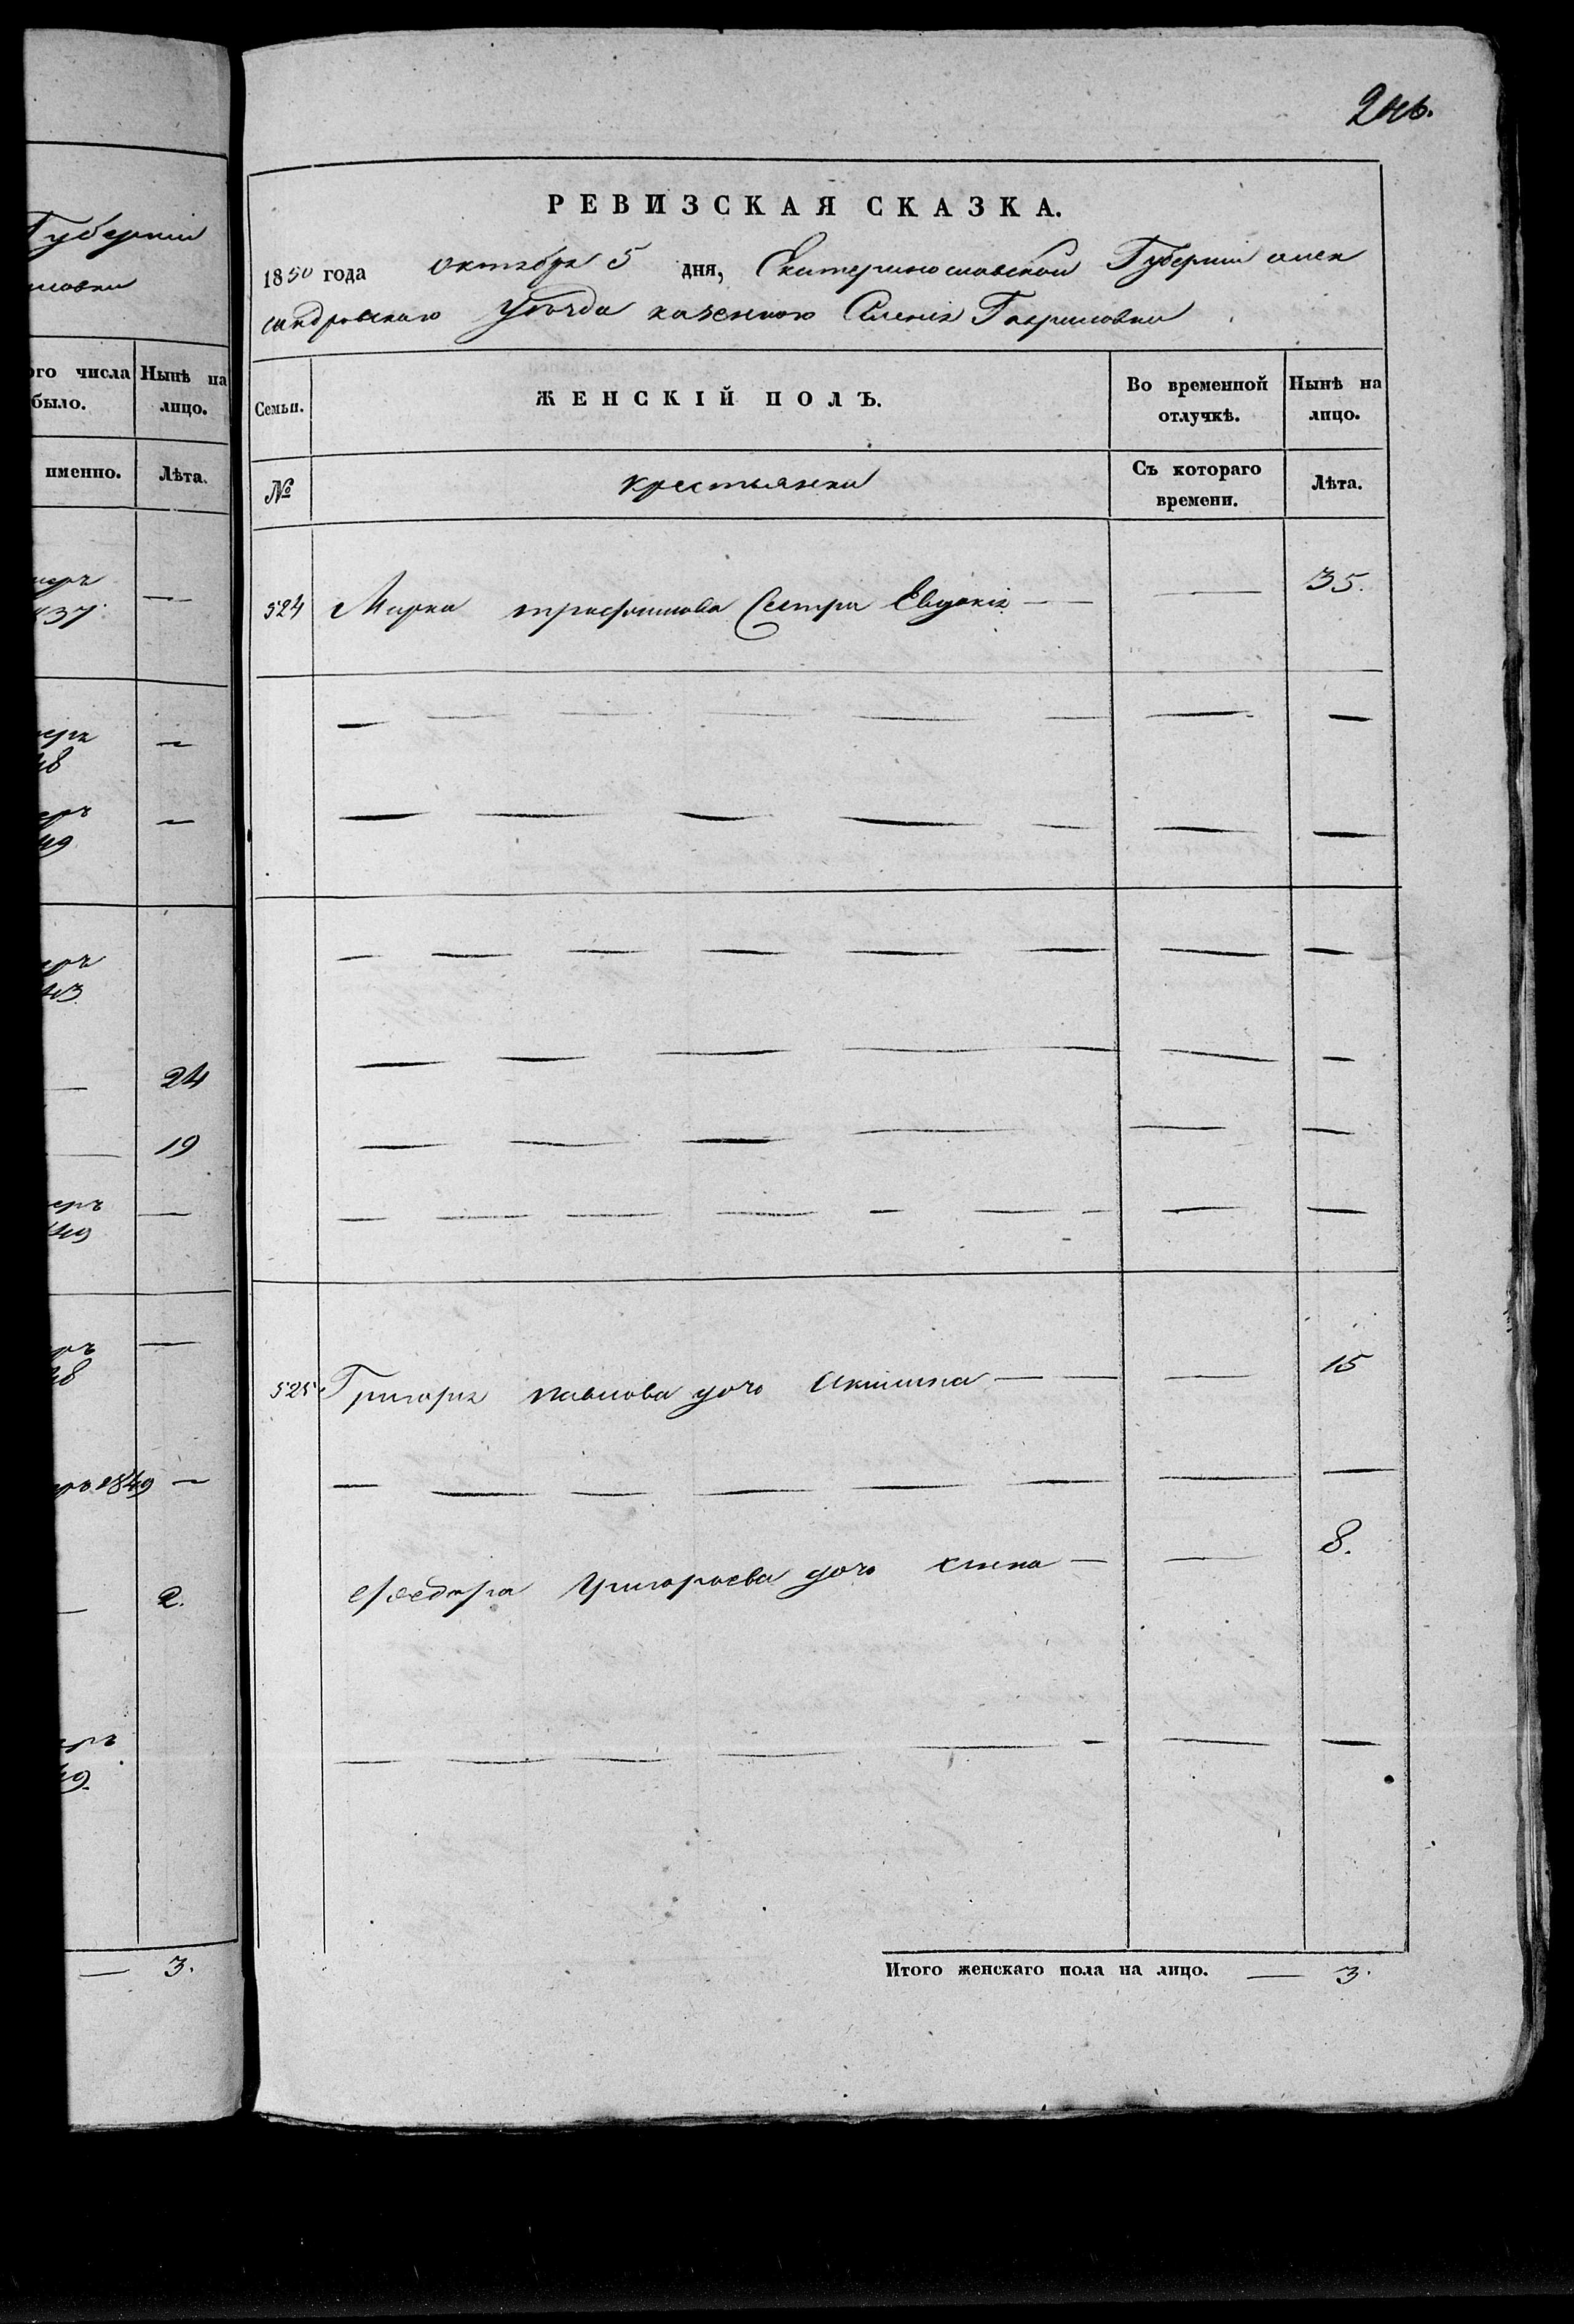 Губерніи
ого числа было. Нынѣ на лицо.
именно. Лѣта.
24
19
1849 —
2.
— 3.
246.
РЕВИЗСКАЯ СКАЗКА.
1850 года октября 5 дня, Екатеринославской Губерніи алек
сандровскаго Уѣзда казенного Селенія Гавриловки
Семьи. ЖЕНСКІЙ ПОЛЪ. Во временной отлучкѣ. Нынѣ на лицо.
№ крестьянки Съ котораго времени. Лѣта.
524 Марка трофимова Сестра Евдокія — — — 35.
525 Григорія павлова дочь Акилина — — — 15
Федора Григорьева дочь елена — — 8.
Итого женскаго пола на лицо. — 3.